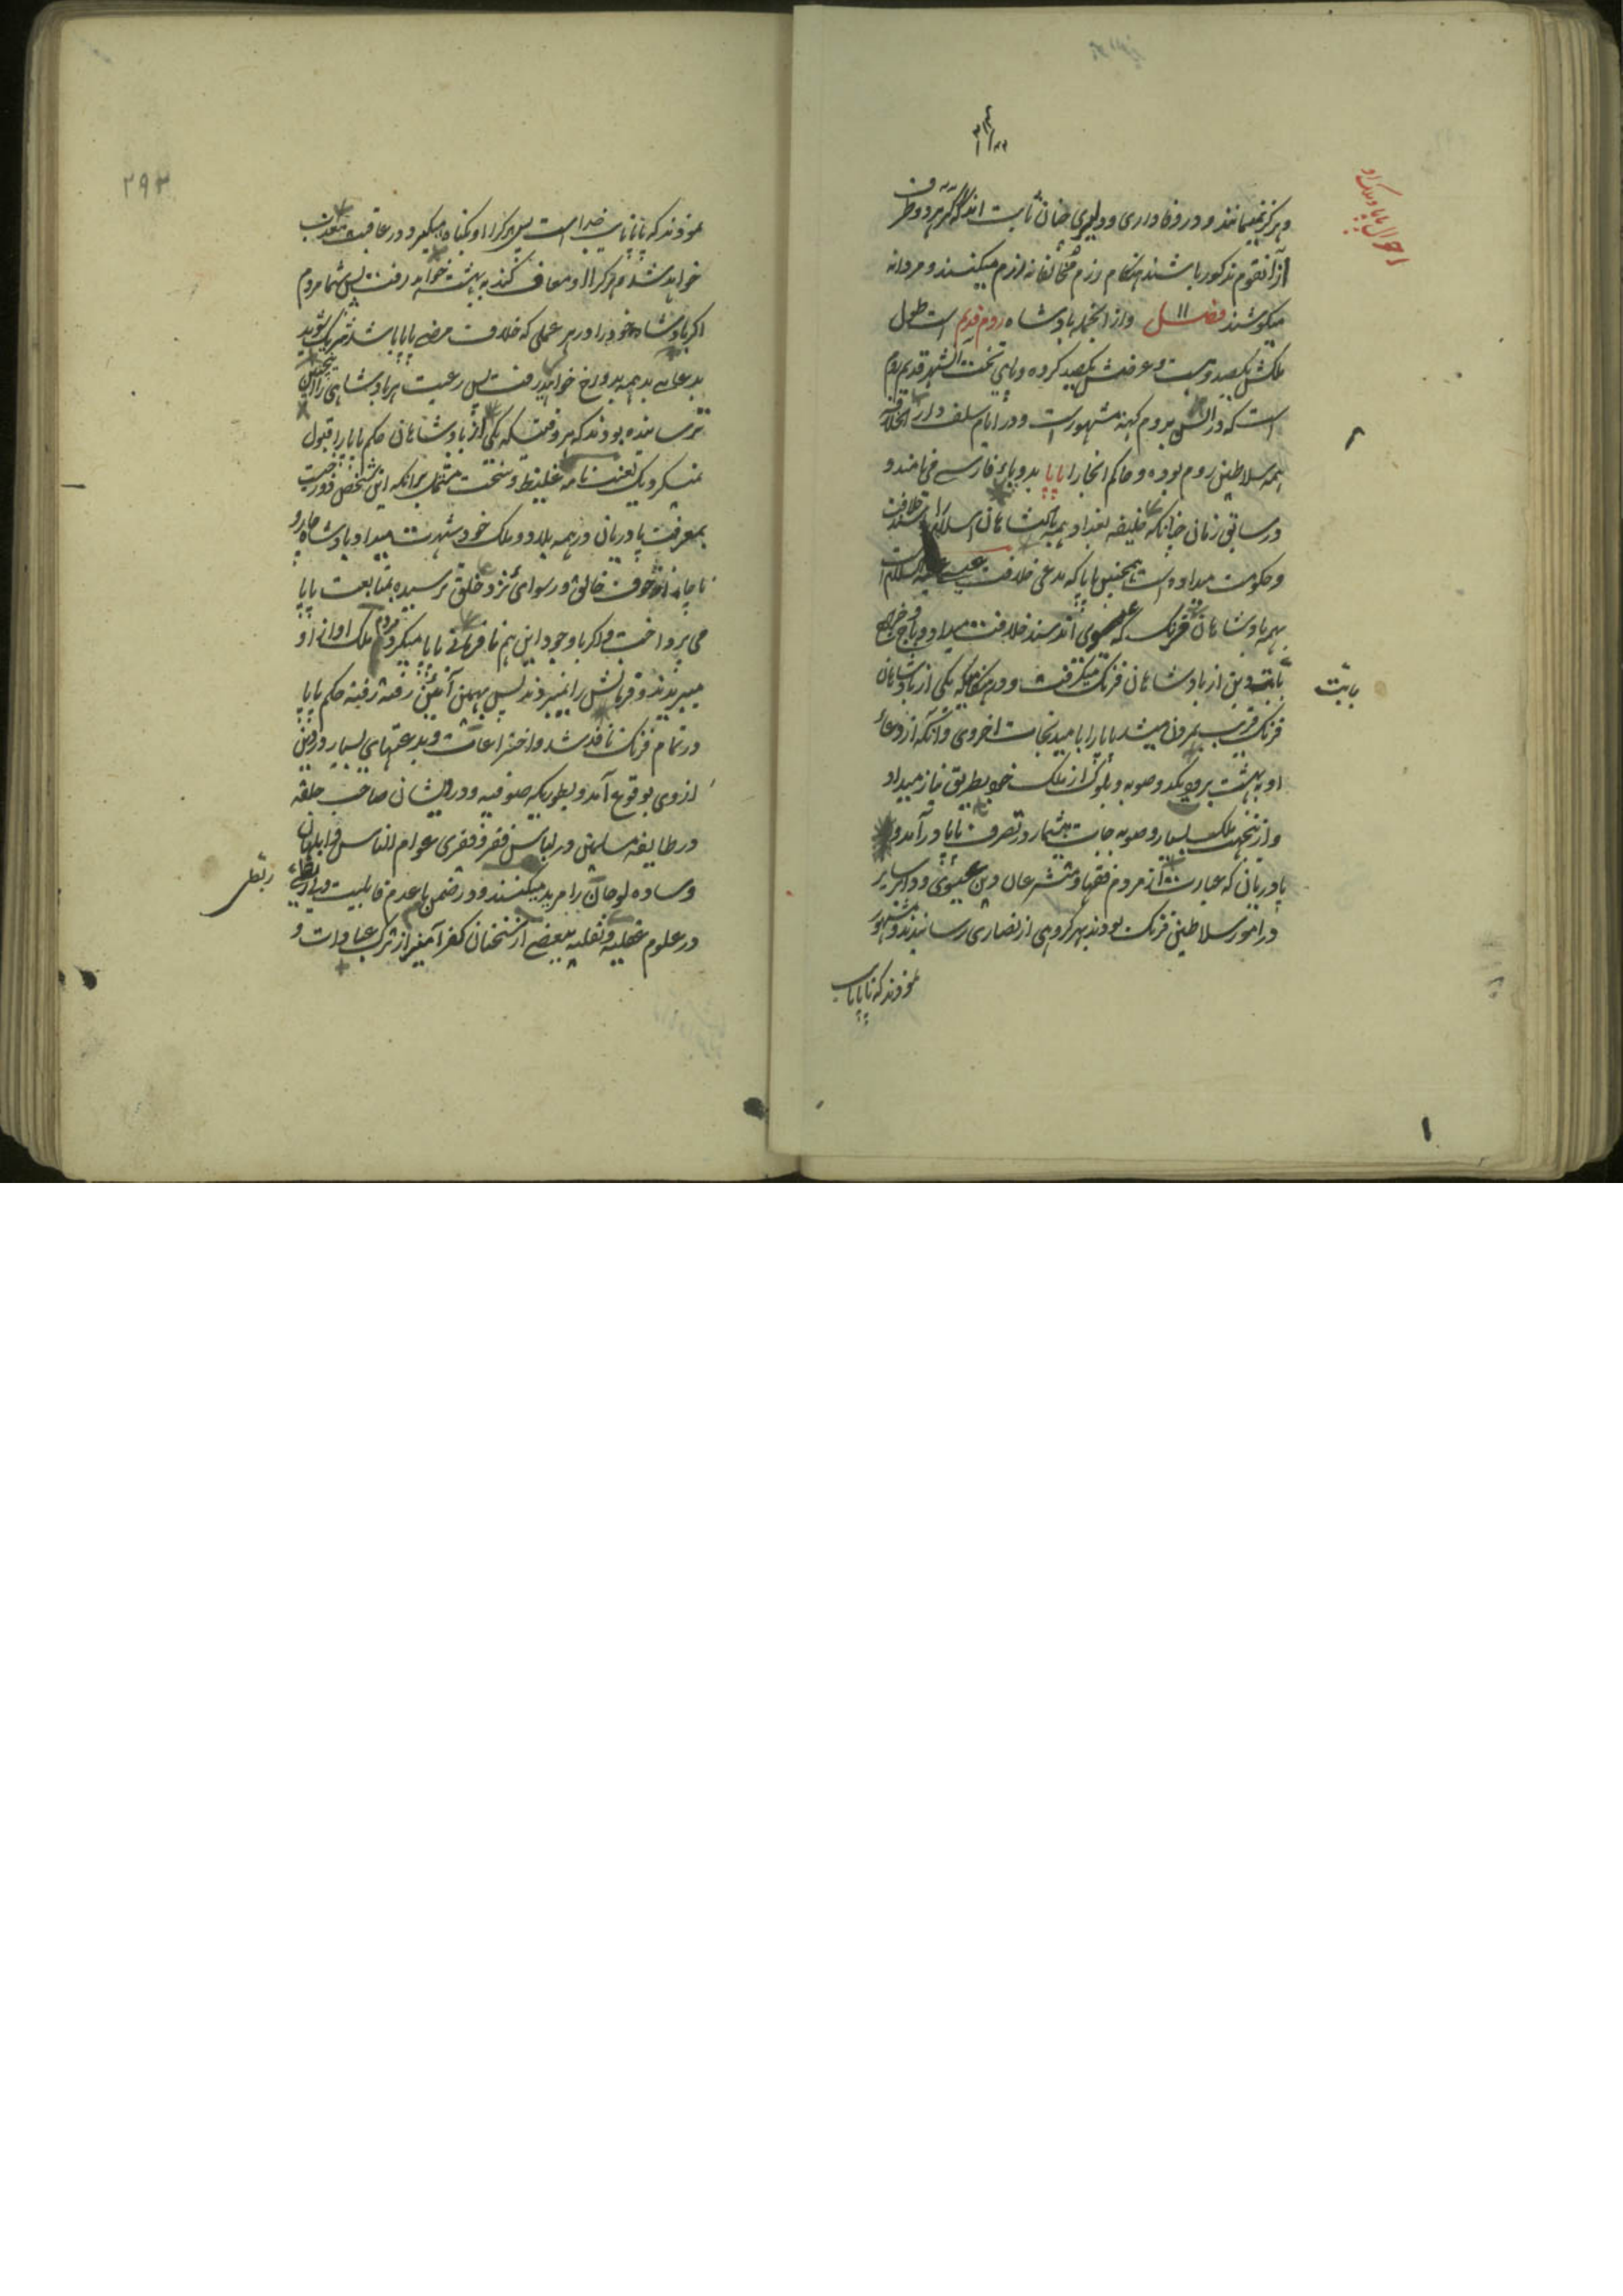 احوال پاپا و ملک او
و هرگز نمیمانند و در وفاداری و دلیری چنان ثابت اند که اگر هر دو طرف
از آنقوم مذکور باشند هنگام رزم مخالفانه رزم میکنند و مردانه
میکوشند فصل ۱۱ و از انجمله پادشاه روم قدیم است طول
ملکش یکصد و بیست و عرضش یکصد کروه و پای تخت الشهر قدیم روم
است که در السن بروم کهنه مشهور است و در ایام سلف دار الخلافه
همه سلاطین روم بوده و حاکم انجا را پاپا بدو پای فارسی می نامند و
در سابق زمان چنانکه خلیفه بغداد بهمه پادشاهان اسلام را سند خلافت
و حکومت میداده است همچنین پاپا که مدعی خلافت عیسی علیه السلام است
بهمه پادشاهان فرنگ که عیسوی اند سند خلافت میداد و باج و خراج
بابت دین از پادشاهان فرنگ میگرفت و در هنگامیکه یکی از پادشاهان
بابت
فرنگ قریب بمردن میشد پاپا را بامید نجات اخروی و آنکه از دعاء
او به بهشت برود یکدو صوبه و بلوک از ملک خود بطریق نیاز میداد
و ازینجهت ملک بسیار و صوبه جات بیشمار در تصرف پاپا در آمد و
پادریانی که عبارت از مردم فقها و متشرعان دین عیسوی و دایر سایر
در امور سلاطین فرنگ بودند بهر گروهی از نصاری رسانیدند و مشهور
نمودند که پاپا نایب
۲۹۳
نمودند که پاپا نایب خداست پس هر کرا او بگناه میگیرد در عاقبت معذب
خواهد شد و هر کرا او معاف کند به بهشت خواهد رفت پس شما مردم
اگر پادشاه خود را در هر عملی که خلاف مرضی پاپا باشد شریک شوید
بدعای بد همه بدوزخ خواهید رفت پس رعیت هر پادشاهی را اینچنین
ترسانده بودند که هر وقتیکه یکی از پادشاهان حکم پاپا را قبول
نمیکرد یک لعنت نامه غلیظ و سخت مشتمل برانکه این شخص دوزخیست
بمعرفت پادریان در همه بلاد و ملک خود شهرت میداد پادشاه چار و
ناچار از خوف خالق و رسوائی نزد خلق ترسیده بمتابعت پاپا
می پرداخت و اگر باوجود این هم نافرمانی پاپا میکرد مردم ملک او از او
میبریدند و فرمانش را نمیبردند پس بهمین آئین رفته رفته حکم پاپا
در تمام فرنگ نافذ شد و اختراعات و بدعتهای بسیار در دین
از وی بوقوع آمد و بطوریکه صوفیه و درویشان صاحب حلقه
در طایفه مسلمین در لباس فقر و فقری عوام الناس و ابلهان
و ساده لوحان را مرید میکنند و در ضمن با عدم قابلیت و بی ربطی
ربطی
در علوم عقلیه و نقلیه ببعضی از سخنان کفر آمیز از ترک عبادات و